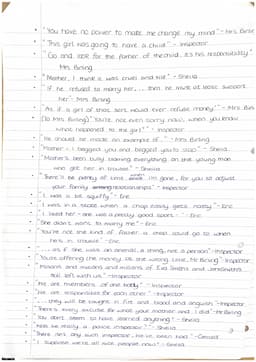 • "You have no power to make me change my mind" - Mrs Birling
• "This girl was going to have a child" - Inspector
• "Go and look for the father of the child. It's his responsibility" -
Mrs Birling
• "Mother, I think it was cruel and vile" - Sheila
• "If he refused to marry her... then he must at least support
her" - Mrs Birling
• "As if a girl of that sort would ever refuse money" - Mrs Birling
• (To Mrs Birling) "You're not even sorry now, when you know
what happened to the girl?" - Inspector
• "He should be made an example of" - Mrs Birling
• "Mother - I begged you and begged you to stop" - Sheila
• "Mother's been busy blaming everything on the young man
who got her in trouble" - Sheila
• "There'll be plenty of time when I'm gone, for you to adjust
your family relationships" - Inspector
• "I was a bit squiffy" - Eric
• "I was in a state when a chap easily gets nasty" - Eric
• "I liked her - she was a pretty good sport" - Eric
• "She didn't want to marry me" - Eric
• "You're not the kind of father a chap could go to when
he's in trouble" - Eric
• "... as if she was an animal, a thing, not a person" - Inspector
• "You're offering the money at the wrong time, Mr Birling" Inspector
• "Millions and millions and millions of Eva Smiths and John Smiths
still left with us" - Inspector
• "We are members of one body" - Inspector
• "We are responsible for each other" - Inspector
• "... they will be taught in fire and blood and anguish" - Inspector
• "There's every excuse for what your mother and I did" Mr Birling
• "You don't seem to have learned anything" - Sheila
• "Was he really a police inspector?" - Sheila
• "There isn't any such inspector. We've been had" - Gerald
• "I suppose we're all nice people now" - Sheila